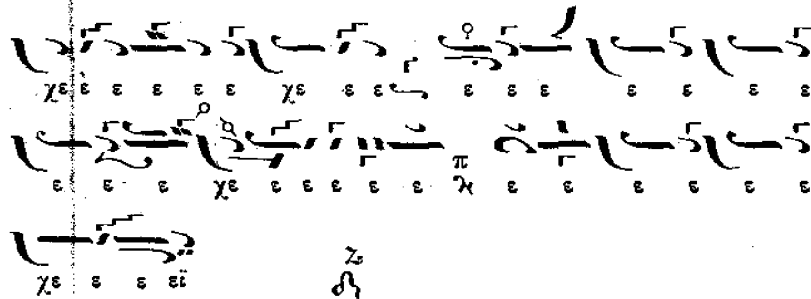 χε ε ε ε ε ε χε ε ε ε ε ε ε ε ε ε
ε ε ε χε ε ε ε ε ε π ε ε ε ε ε ε
χε ε ε εϊ